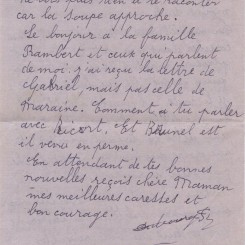 ne vois plus rien à te raconter
car la soupe approche.
Le bonjour à la famille
Rambert et ceux qui parlent
de moi. J'ai reçu la lettre de
Gabriel, mais pas celle de
Maraine. Comment à tu parler
avec Ricort. Et Brunel est
il venu en perme.
En attendant de tes bonnes
nouvelles reçois chère Maman
mes meilleures caresses et
bon courage.